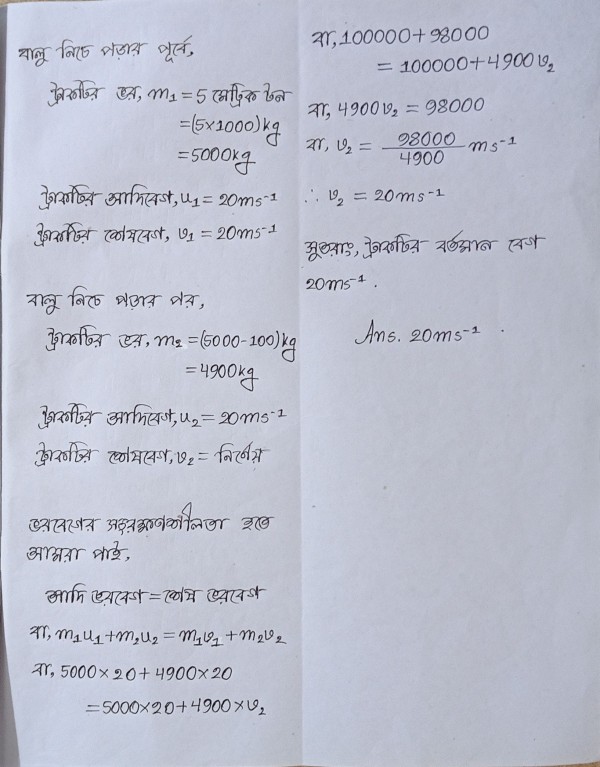 বালু নিচে পড়ার পূর্বে,
ট্রাকটির ভর, m₁ = 5 মেট্রিক টন
= (5×1000) kg
= 5000kg
ট্রাকটির আদিবেগ, u₁ = 20ms⁻¹
ট্রাকটির শেষবেগ, v₁ = 20ms⁻¹
বালু নিচে পড়ার পর,
ট্রাকটির ভর, m₂ = (5000-100) kg
= 4900kg
ট্রাকটির আদিবেগ, u₂ = 20ms⁻¹
ট্রাকটির শেষবেগ, v₂ = নির্ণেয়
ভরবেগের সংরক্ষণশীলতা হতে
আমরা পাই,
আদি ভরবেগ = শেষ ভরবেগ
বা, m₁u₁ + m₂u₂ = m₁v₁ + m₂v₂
বা, 5000×20 + 4900×20
= 5000×20 + 4900×v₂
বা, 100000 + 98000
= 100000 + 4900v₂
বা, 4900v₂ = 98000
বা, v₂ = 98000/4900 ms⁻¹
∴ v₂ = 20ms⁻¹
সুতরাং, ট্রাকটির বর্তমান বেগ
20ms⁻¹.
Ans. 20ms⁻¹.